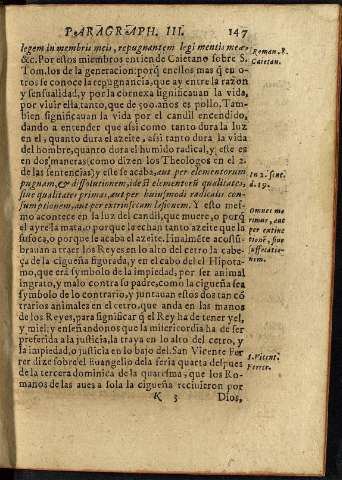 PARAGRAPH. III. 147
legem in membris meis, repugnantem legi mentis meæ
&c. Por estos miembros entiende Caietano sobre S.
Tom. los de la generacion: porq̃ en ellos mas q̃ en o-
tros se conoce la repugnancia, que ay entre la razon
y sensualidad, y por la cornexa significauan la vida,
por viuir ella tanto, que de 500. años es pollo. Tam
bien significauan la vida por el candil encendido,
dando a entender que assi como tanto dura la luz
en el, quanto dura el azeite, assi tanto dura la vida
del hombre, quanto dura el humido radical, y este es
en dos maneras (como dizen los Theologos en el 2.
de las sentencias) y este se acaba, aut per elementorum
pugnam, & dissolutionem, id est elementorũ qualitates,
siue qualitates primas, aut per huiusmodi radicalis con-
sumptionem, aut per extrinsecam læsionem. Y esto mes-
mo acontece en la luz del candil, que muere, o porq̃
el ayre la mata, o porque la echan tanto azeite que la
sufoca, o porque le acabo el azeite. Finalmẽte acostũ-
brauan a traer los Reyes en lo alto del cetro la cabe-
ça de la cigueña figurada, y en el cabo del el Hipota-
mo, que erà symbolo de la impiedad; por ser animal
ingrato, y malo contra su padre, como la cigueña sea
symbolo de lo contrario, y juntauan estos dos tan cõ
trarios animales en el cetro, que anda en las manos
de los Reyes, para significar q̃ el Rey ha de tener yel,
y miel; y enseñandonos que la misericordia ha de ser
preferida a la justicia, la traya en lo alto del cetro, y
la impiedad, o justicia en lo bajo del. San Vicente Fer
rer dize sobre el Euangelio de la feria quarta despues
de la tercera dominica de la quaresma, que los Ro-
manos de las aues a sola la cigueña reciuieron por
K 3 Dios,
Roman. 8.
Caietan.
In 2. sent.
d. 19.
omnes mo
rimur, aut
per extinc
tionẽ, siue
suffocatio-
nem.
S. Vicent.
Ferrer.